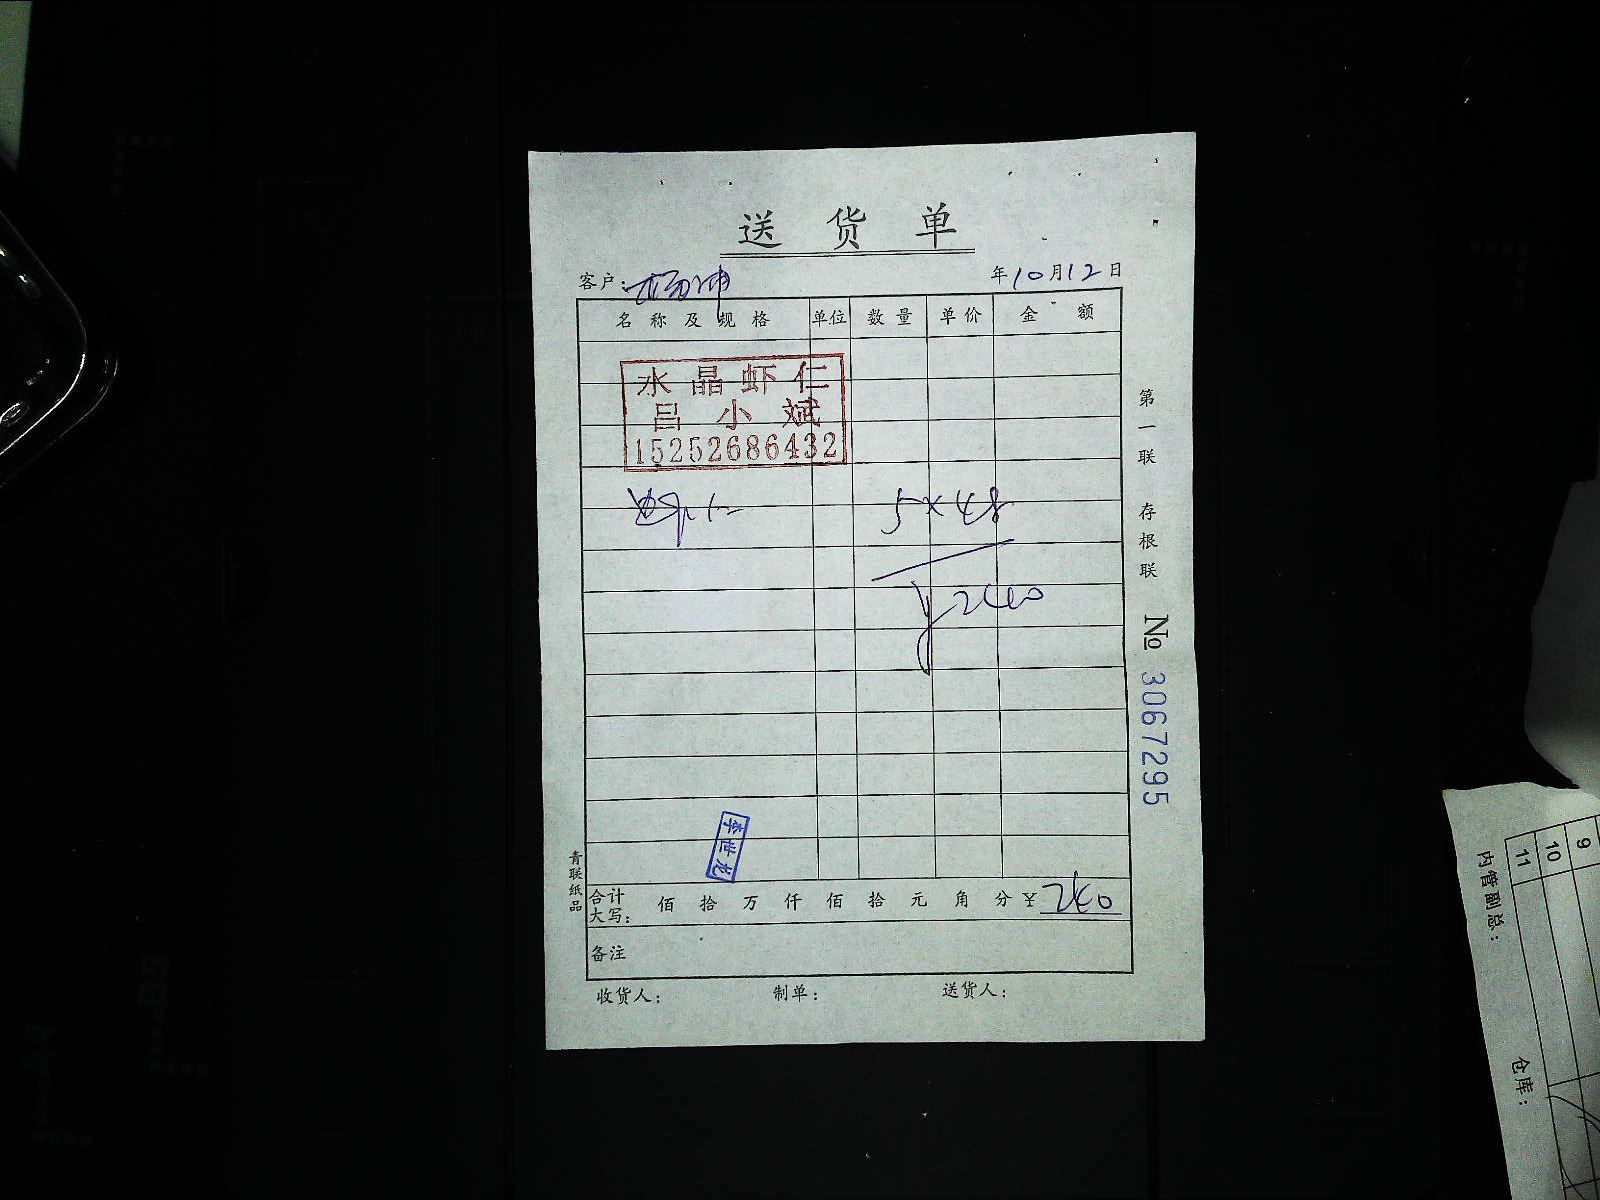 送货单
客户： 年10月12日
名称及规格 单位 数量 单价 金额
水晶虾仁
吕小斌
15252686432
虾仁 5×48
¥240
李世龙
合计大写： 佰 拾 万 仟 佰 拾 元 角 分 ¥240
备注
收货人： 制单： 送货人：
第一联 存根联
№ 3067295
青联纸品
9
10
11
内管副总：
仓库：